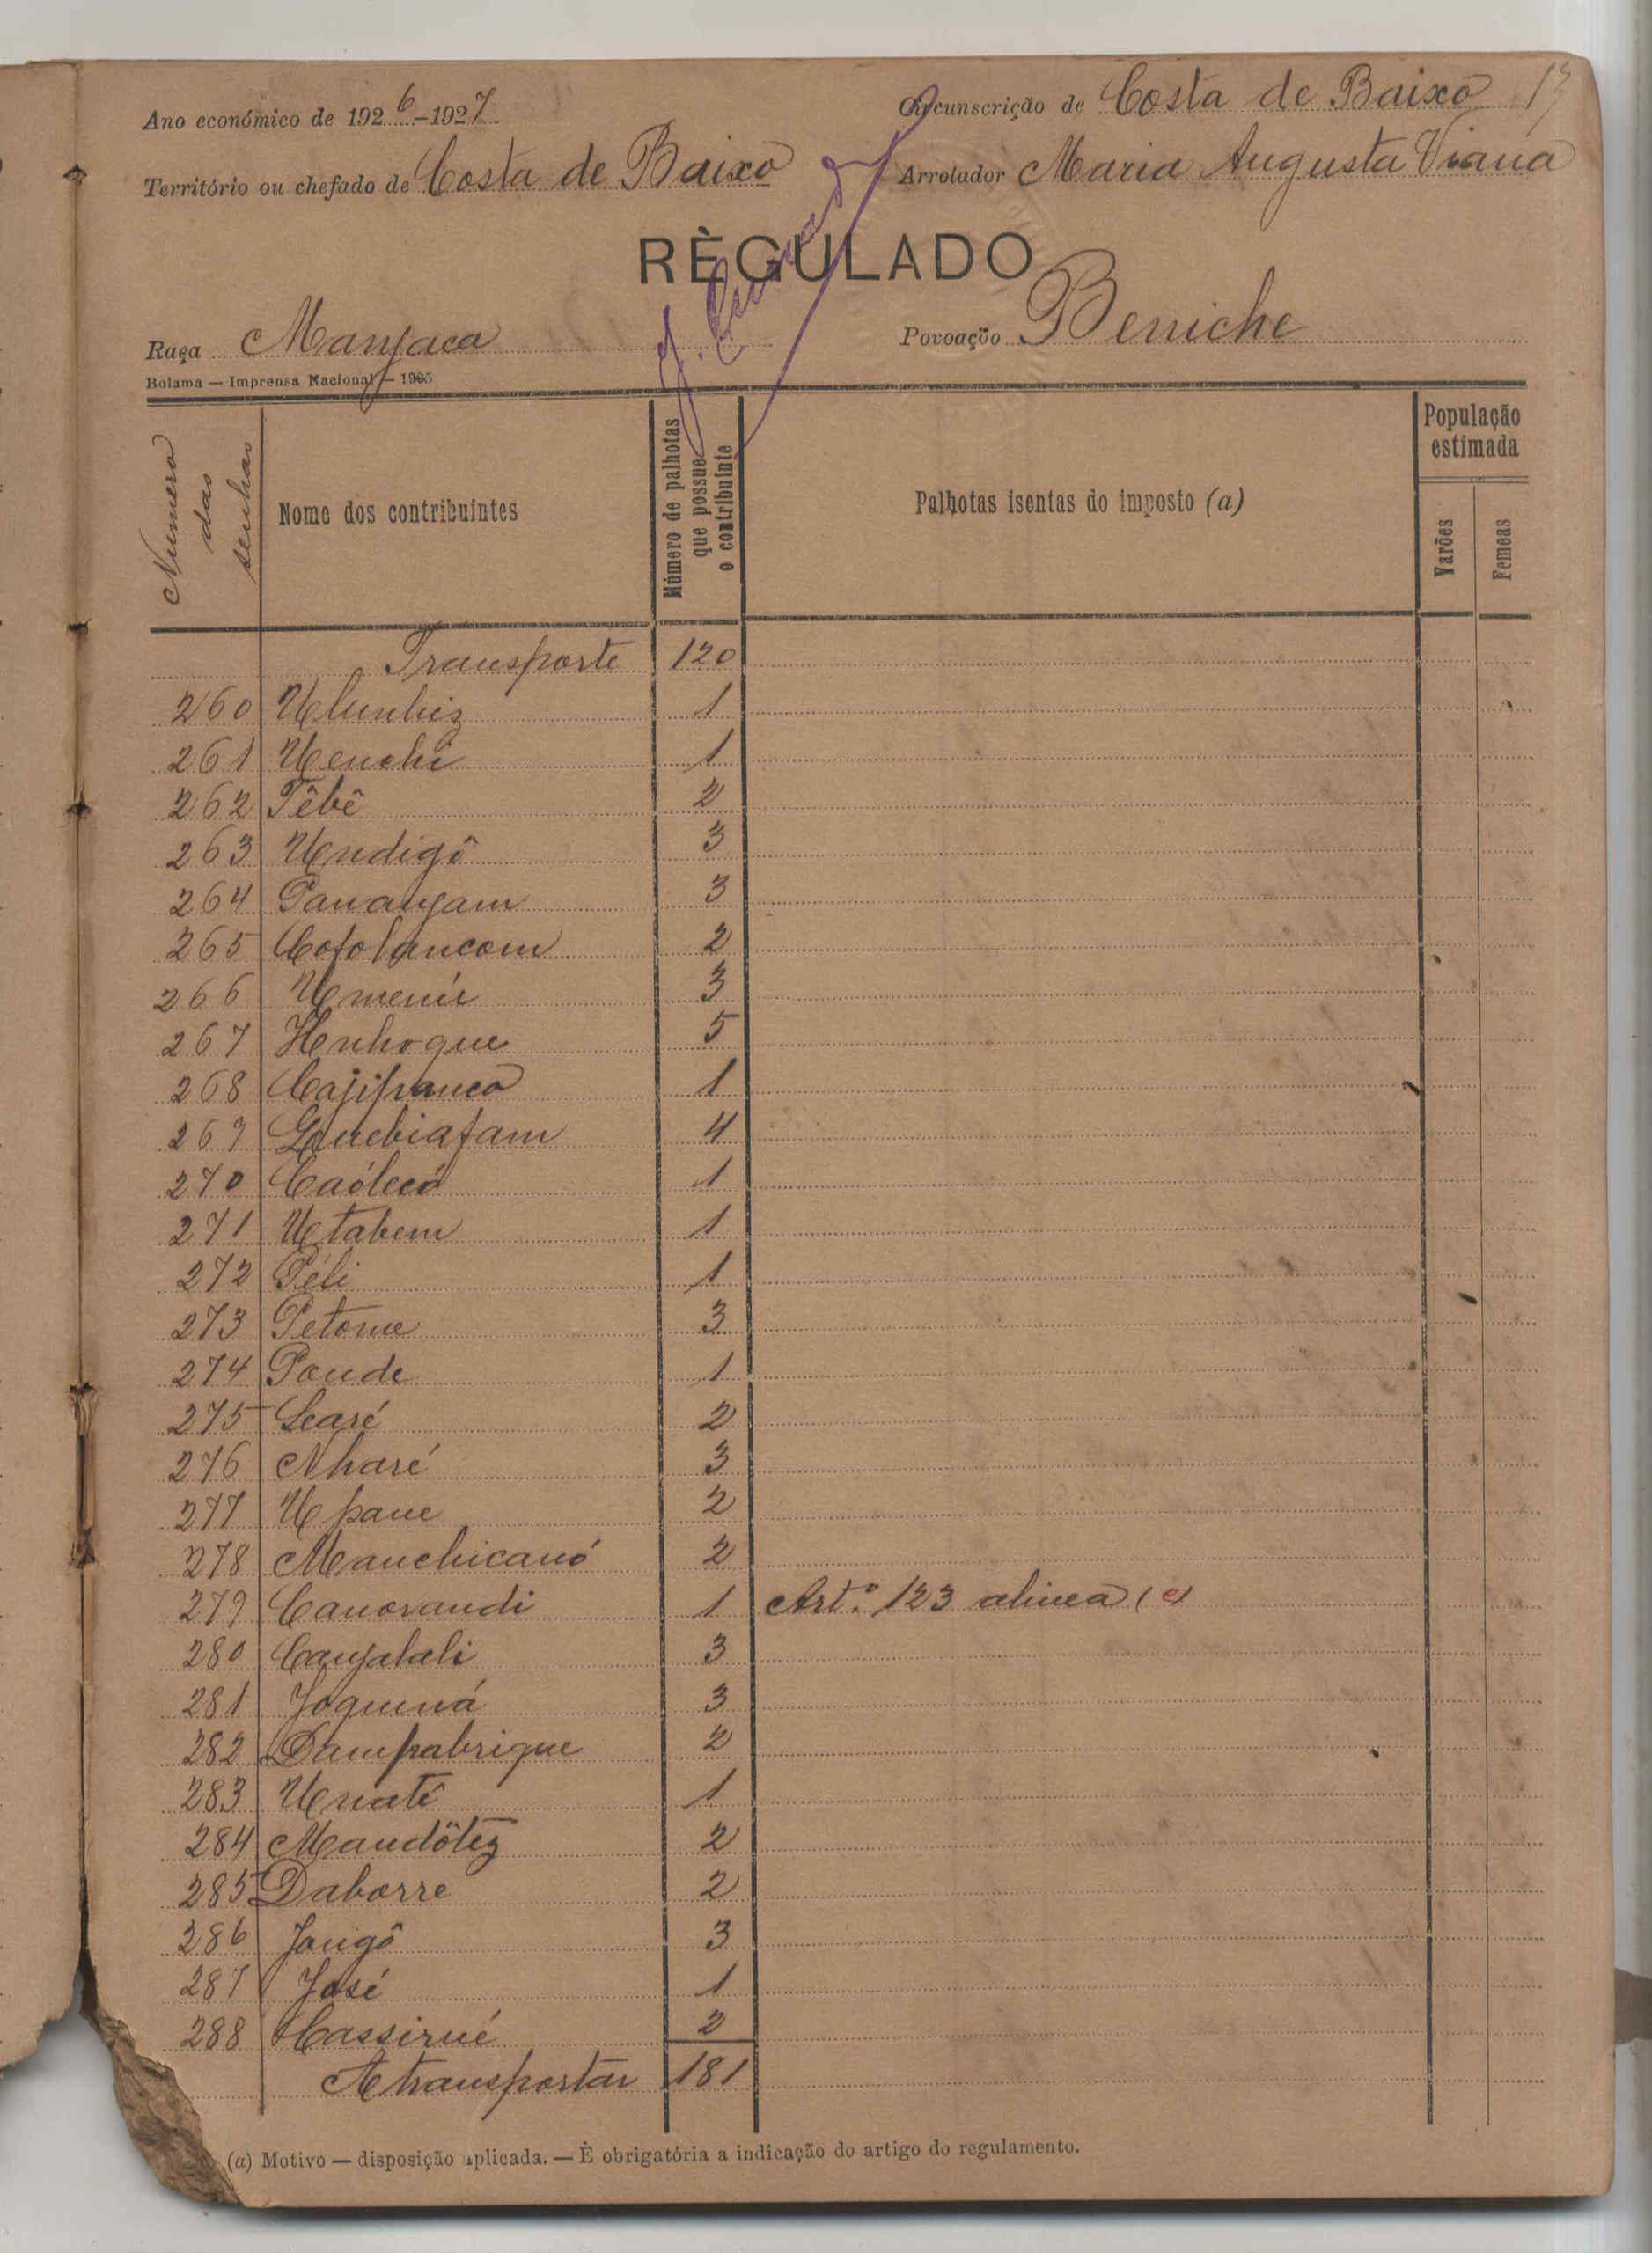 Ano económico de 1926-1927
Circunscrição de Costa de Baixo
Território ou chefado de Costa de Baixo
Arrolador Maria Augusta Viana
RÈGULADO
Raça Manjaca
Povoação Beniche
Bolama — Imprensa Nacional — 1925
Numero das senhas
Nome dos contribuintes
Número de palhotas que possue o contribuinte
Palhotas isentas do imposto (a)
População estimada
Varões
Femeas
Transporte 120
260 Ulunhiz 1
261 Uenchi 1
262 Têbê 2
263 Undigô 3
264 Pananjam 3
265 Cotolancom 2
266 Umenir 3
267 Henhoque 5
268 Cajipranca 1
269 4
270 Caólecó 1
271 Utabem 1
272 Péli 1
273 Petome 3
274 Ponde 1
275 Learé 2
276 Nharé 3
277 Upane 2
278 Manchicanó 2
279 Canovandi 1 Artº. 123 alinea (e)
280 Canjalali 3
281 Joquená 3
282 Dampabrique 2
283 Unatê 1
284 Mandôtez 2
285 Daborre 2
286 Jongô 3
287 José 1
288 Cassirué 2
A transportar 181
(a) Motivo — disposição aplicada. — È obrigatória a indicação do artigo do regulamento.